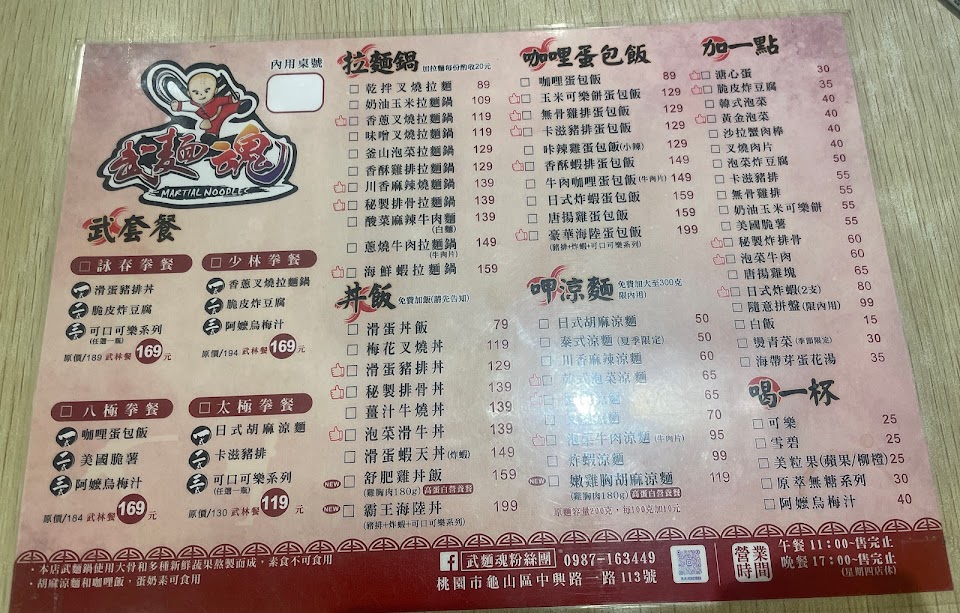 內用桌號
武麵魂
MARTIAL NOODLES
武套餐
詠春拳餐
一 滑蛋豬排丼
二 脆皮炸豆腐
三 可口可樂系列
(任選一瓶)
原價/189 武林餐 169元
少林拳餐
一 香蔥叉燒拉麵鍋
二 脆皮炸豆腐
三 阿嬤烏梅汁
原價/194 武林餐 169元
八極拳餐
一 咖哩蛋包飯
二 美國脆薯
三 阿嬤烏梅汁
原價/184 武林餐 169元
太極拳餐
一 日式胡麻涼麵
二 卡滋豬排
三 可口可樂系列
(任選一瓶)
原價/130 武林餐 119元
拉麵鍋 加拉麵每份酌收20元
乾拌叉燒拉麵 89
奶油玉米拉麵鍋 109
香蔥叉燒拉麵鍋 119
味噌叉燒拉麵鍋 119
釜山泡菜拉麵鍋 129
香酥雞排拉麵鍋 129
川香麻辣燒麵鍋 139
秘製排骨拉麵鍋 139
酸菜麻辣牛肉麵 139
(白麵)
蔥燒牛肉拉麵鍋 149
(牛肉片)
海鮮蝦拉麵鍋 159
丼飯 免費加飯(請先告知)
滑蛋丼飯 79
梅花叉燒丼 119
滑蛋豬排丼 129
秘製排骨丼 139
薑汁牛燒丼 139
泡菜滑牛丼 139
滑蛋蝦天丼(炸蝦) 149
NEW 舒肥雞丼飯 159
(雞胸肉180g) 高蛋白營養餐
NEW 霸王海陸丼 199
(豬排+炸蝦+可口可樂系列)
咖哩蛋包飯
咖哩蛋包飯 89
玉米可樂餅蛋包飯 129
無骨雞排蛋包飯 129
卡滋豬排蛋包飯 129
咔辣雞蛋包飯(小辣) 129
香酥蝦排蛋包飯 149
牛肉咖哩蛋包飯(牛肉片) 149
日式炸蝦蛋包飯 159
唐揚雞蛋包飯 159
豪華海陸蛋包飯 199
(豬排+炸蝦+可口可樂系列)
呷涼麵 免費加大至300克
限內用)
日式胡麻涼麵 50
泰式涼麵(夏季限定) 50
川香麻辣涼麵 60
泡菜涼麵 65
65
70
泡菜牛肉涼麵(牛肉片) 95
炸蝦涼麵 99
NEW 嫩雞胸胡麻涼麵 119
(雞胸肉180g) 高蛋白營養餐
原麵容量200克,每100克加10元
加一點
溏心蛋 30
脆皮炸豆腐 35
韓式泡菜 40
黃金泡菜 40
沙拉蟹肉棒 40
叉燒肉片 40
泡菜炸豆腐 50
卡滋豬排 55
無骨雞排 55
奶油玉米可樂餅 55
美國脆薯 55
秘製炸排骨 60
泡菜牛肉 60
唐揚雞塊 65
日式炸蝦(2支) 80
隨意拼盤(限內用) 99
白飯 15
燙青菜(季節限定) 30
海帶芽蛋花湯 35
喝一杯
可樂 25
雪碧 25
美粒果(蘋果/柳橙) 25
原萃無糖系列 30
阿嬤烏梅汁 40
·本店武麵鍋使用大骨和多種新鮮蔬果熬製而成,素食不可食用
·胡麻涼麵和咖哩飯,蛋奶素可食用
武麵魂粉絲團 0987-163449
桃園市龜山區中興路一路113號
營業時間
午餐 11:00~售完止
晚餐 17:00~售完止
(星期四店休)